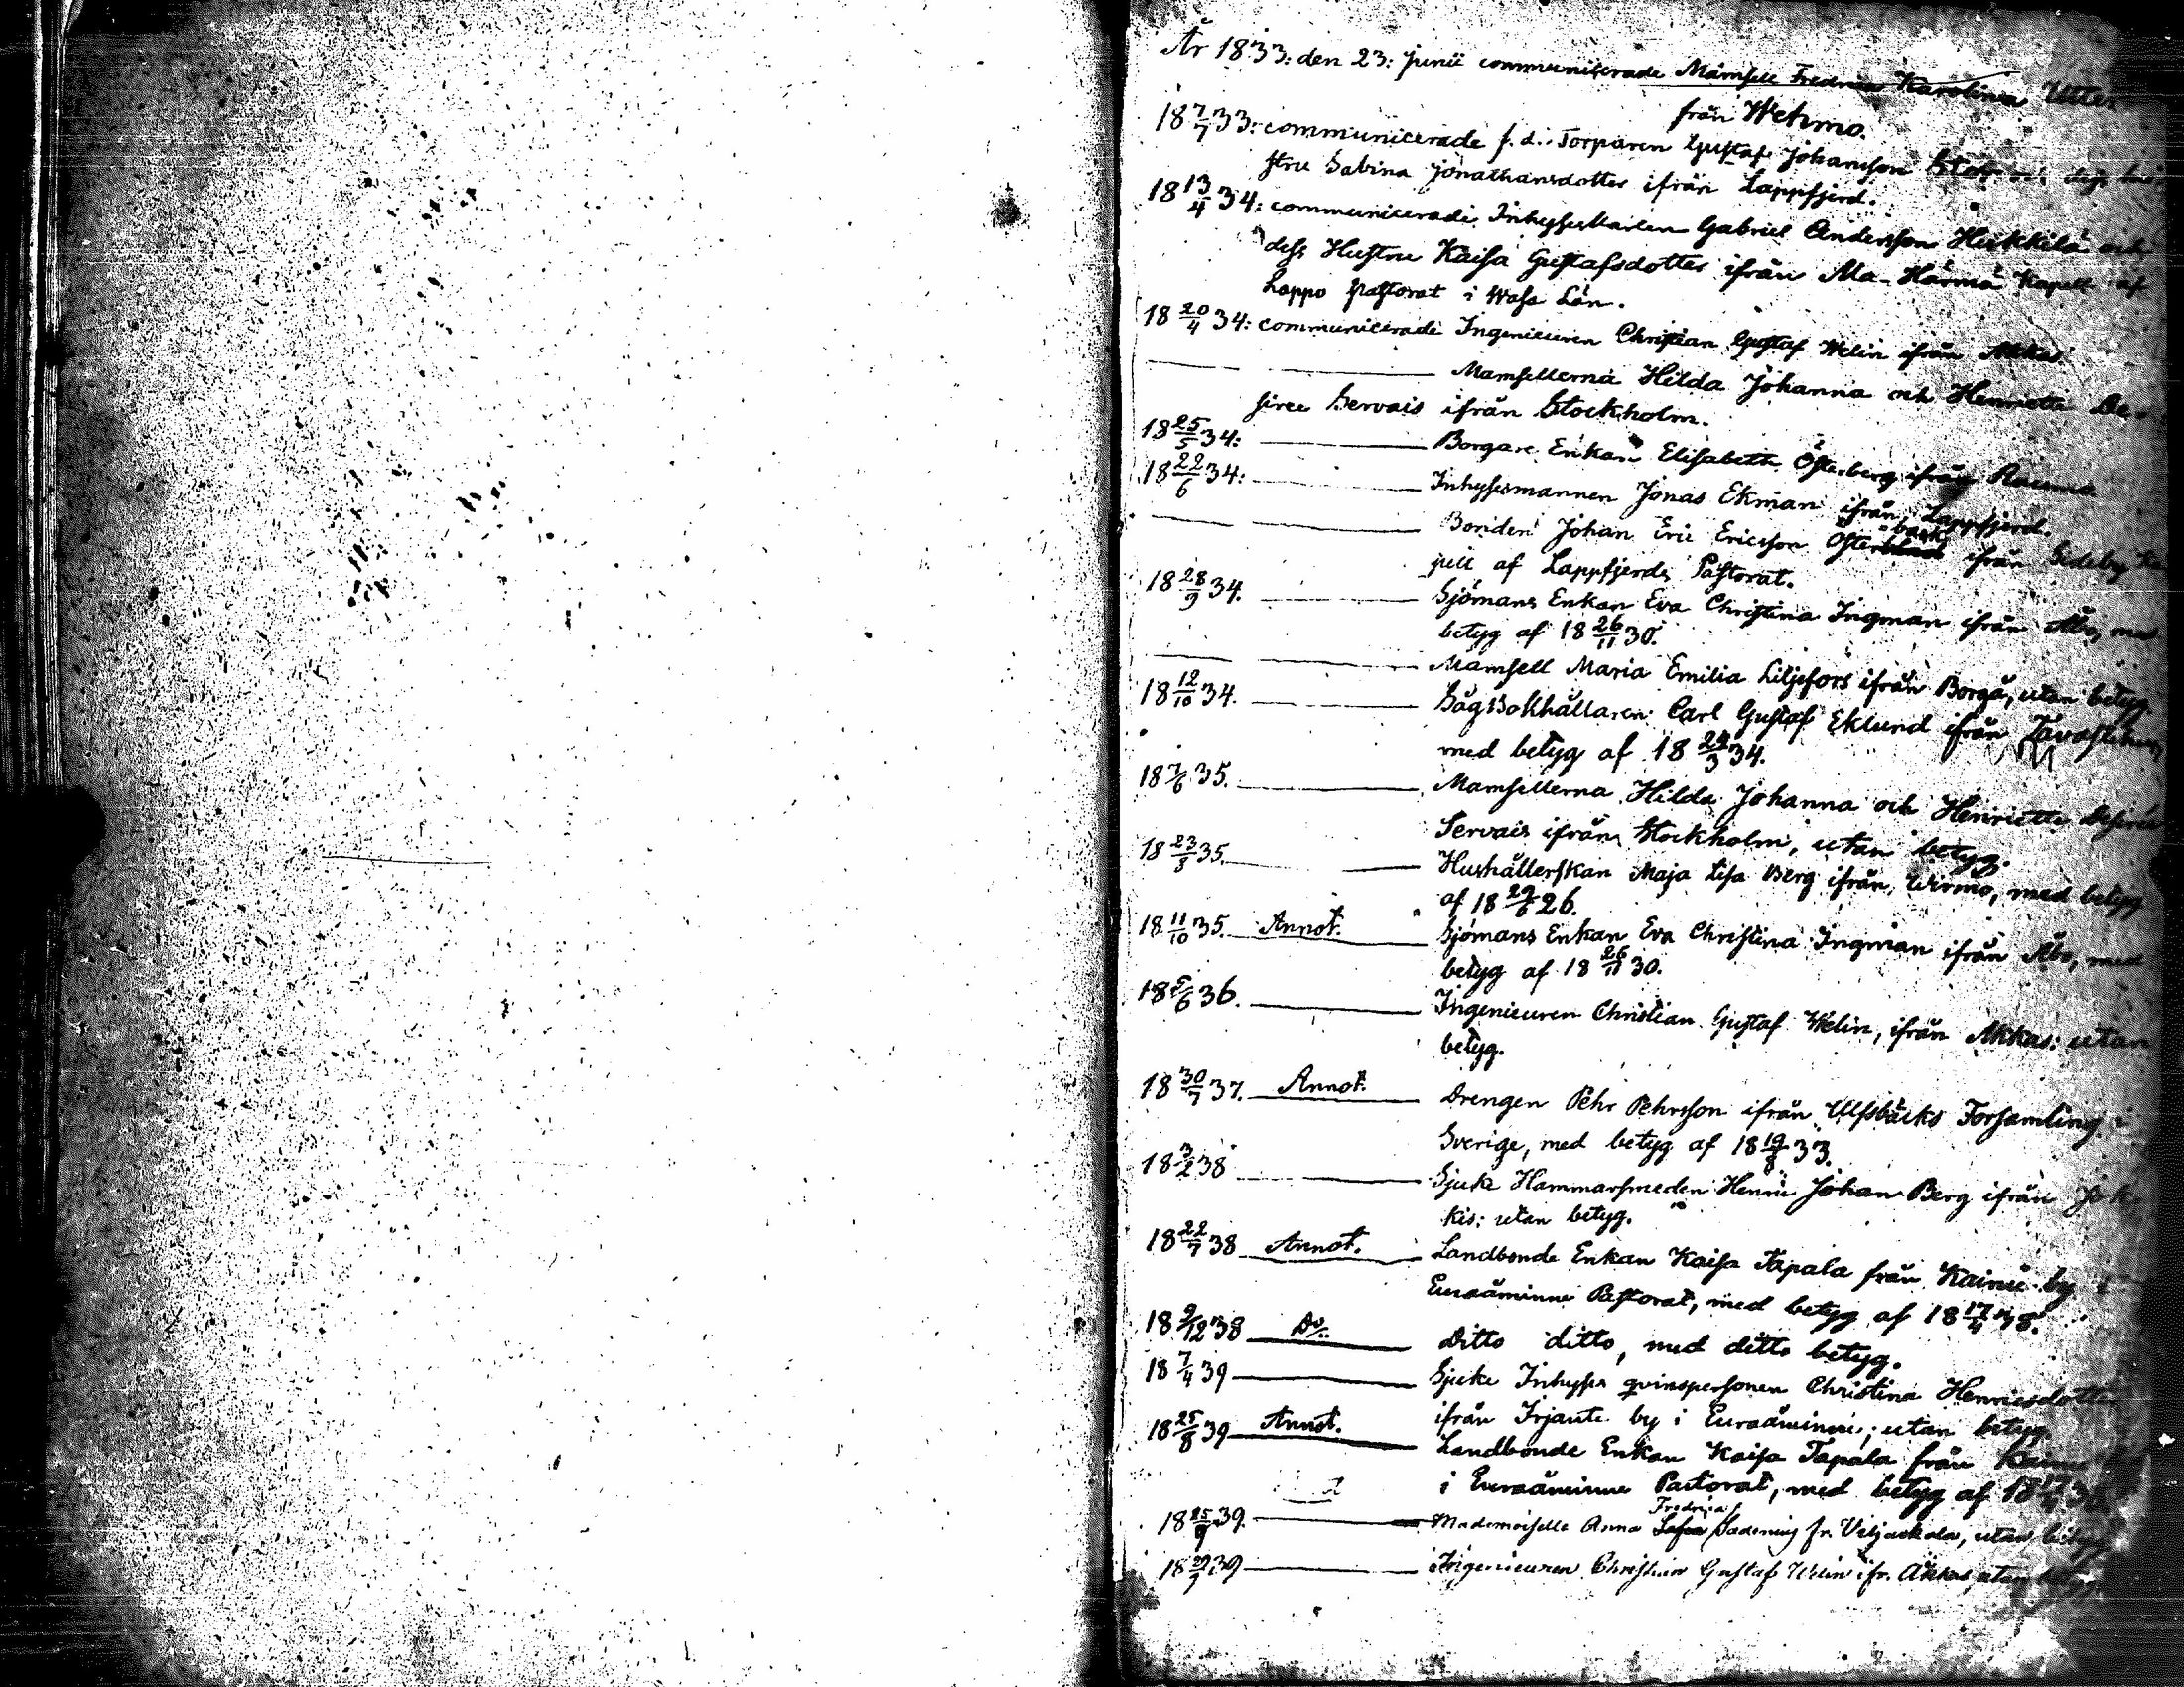 År 1833: den 23: Junii communicerade Mamsell Fredrica Karolina Utter
från Wehmo.
18 7/7 33: communicerade f. d. Torparen Gustaf Johansson
stru Sabina Jonathansdotter ifrån Lappfjerd.
18 13/4 34: communicerade Inhyseskarlen Gabriel Andersson Heikkilä och
dess Hustru Kaisa Gustafsdotter ifrån Ala-Härmä Kapell af
Lappo Pastorat i Wasa Län.
18 20/4 34: communicerade Ingenieuren Christian Gustaf Welin ifrån Akkas:
Mamsellerna Hilda Johanna och Henriette De-
siree Servais ifrån Stockholm.
18 25/5 34: Borgare Enkan Elisabeth Österberg ifrån Raumo
18 22/6 34: Inhysesmannen Jonas Ekman ifrån Lappfjerd.
Bonden Johan Eric Ericsson Öster-back ifrån Sideby Ka
pell af Lappfjerds Pastorat.
18 28/9 34. Sjömans Enkan Eva Christina Ingman ifrån Åbo, med
betyg af 18 26/11 30.
Mamsell Maria Emilia Liljefors ifrån Borgå, utan betyg.
18 12/10 34. Såg Bokhållaren Carl Gustaf Eklund ifrån Tavastehus,
med betyg af 18 24/3 34.
18 7/6 35. Mamsellerna Hilda Johanna och Henriette Desirée
Servais ifrån Stockholm, utan betyg.
18 23/8 35. Hushållerskan Maja Lisa Berg ifrån Wirmo, med betyg
af 18 29/6 26.
18 11/10 35. Annot. Sjömans Enkan Eva Christina Ingman ifrån Åbo, med
betyg af 18 26/11 30.
18 5/6 36. Ingenieuren Christian Gustaf Welin, ifrån Akkas: utan
betyg.
18 30/7 37. Annot. Drengen Pehr Pehrsson ifrån Ulfsbäcks Forsamling i
Sverige, med betyg af 18 19/8 33.
18 3/2 38 Sjuke Hammarsmeden Henric Johan Berg ifrån Jok-
kis: utan betyg.
18 22/7 38 Annot. Landbonde Enkan Kaisa Tapala från Kainu by i
Euraåminne Pastorat, med betyg af 18 17/4 38.
18 9/12 38 Do/: Ditto ditto, med ditto betyg.
18 7/4 39 Sjuke Inhyses qvinspersonen Christina Henricsdotter
ifrån Irjante by i Euraåminne; utan betyg
18 25/8 39 Annot. Landbonde Enkan Kaisa Tapala från Kainu
i Euraåminne Pastorat, med betyg af 18 17/4 38
18 25/9 39. Mademoiselle Anna Fredrica fr. utan betyg
18 39 Ingenieuren Christian Gustaf Welin ifr. Akkas utan betyg